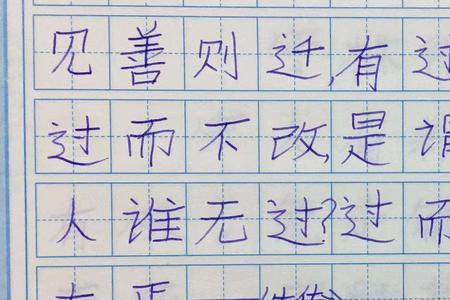 见善则迁,有过
过而不改,是谓
人谁无过?过而